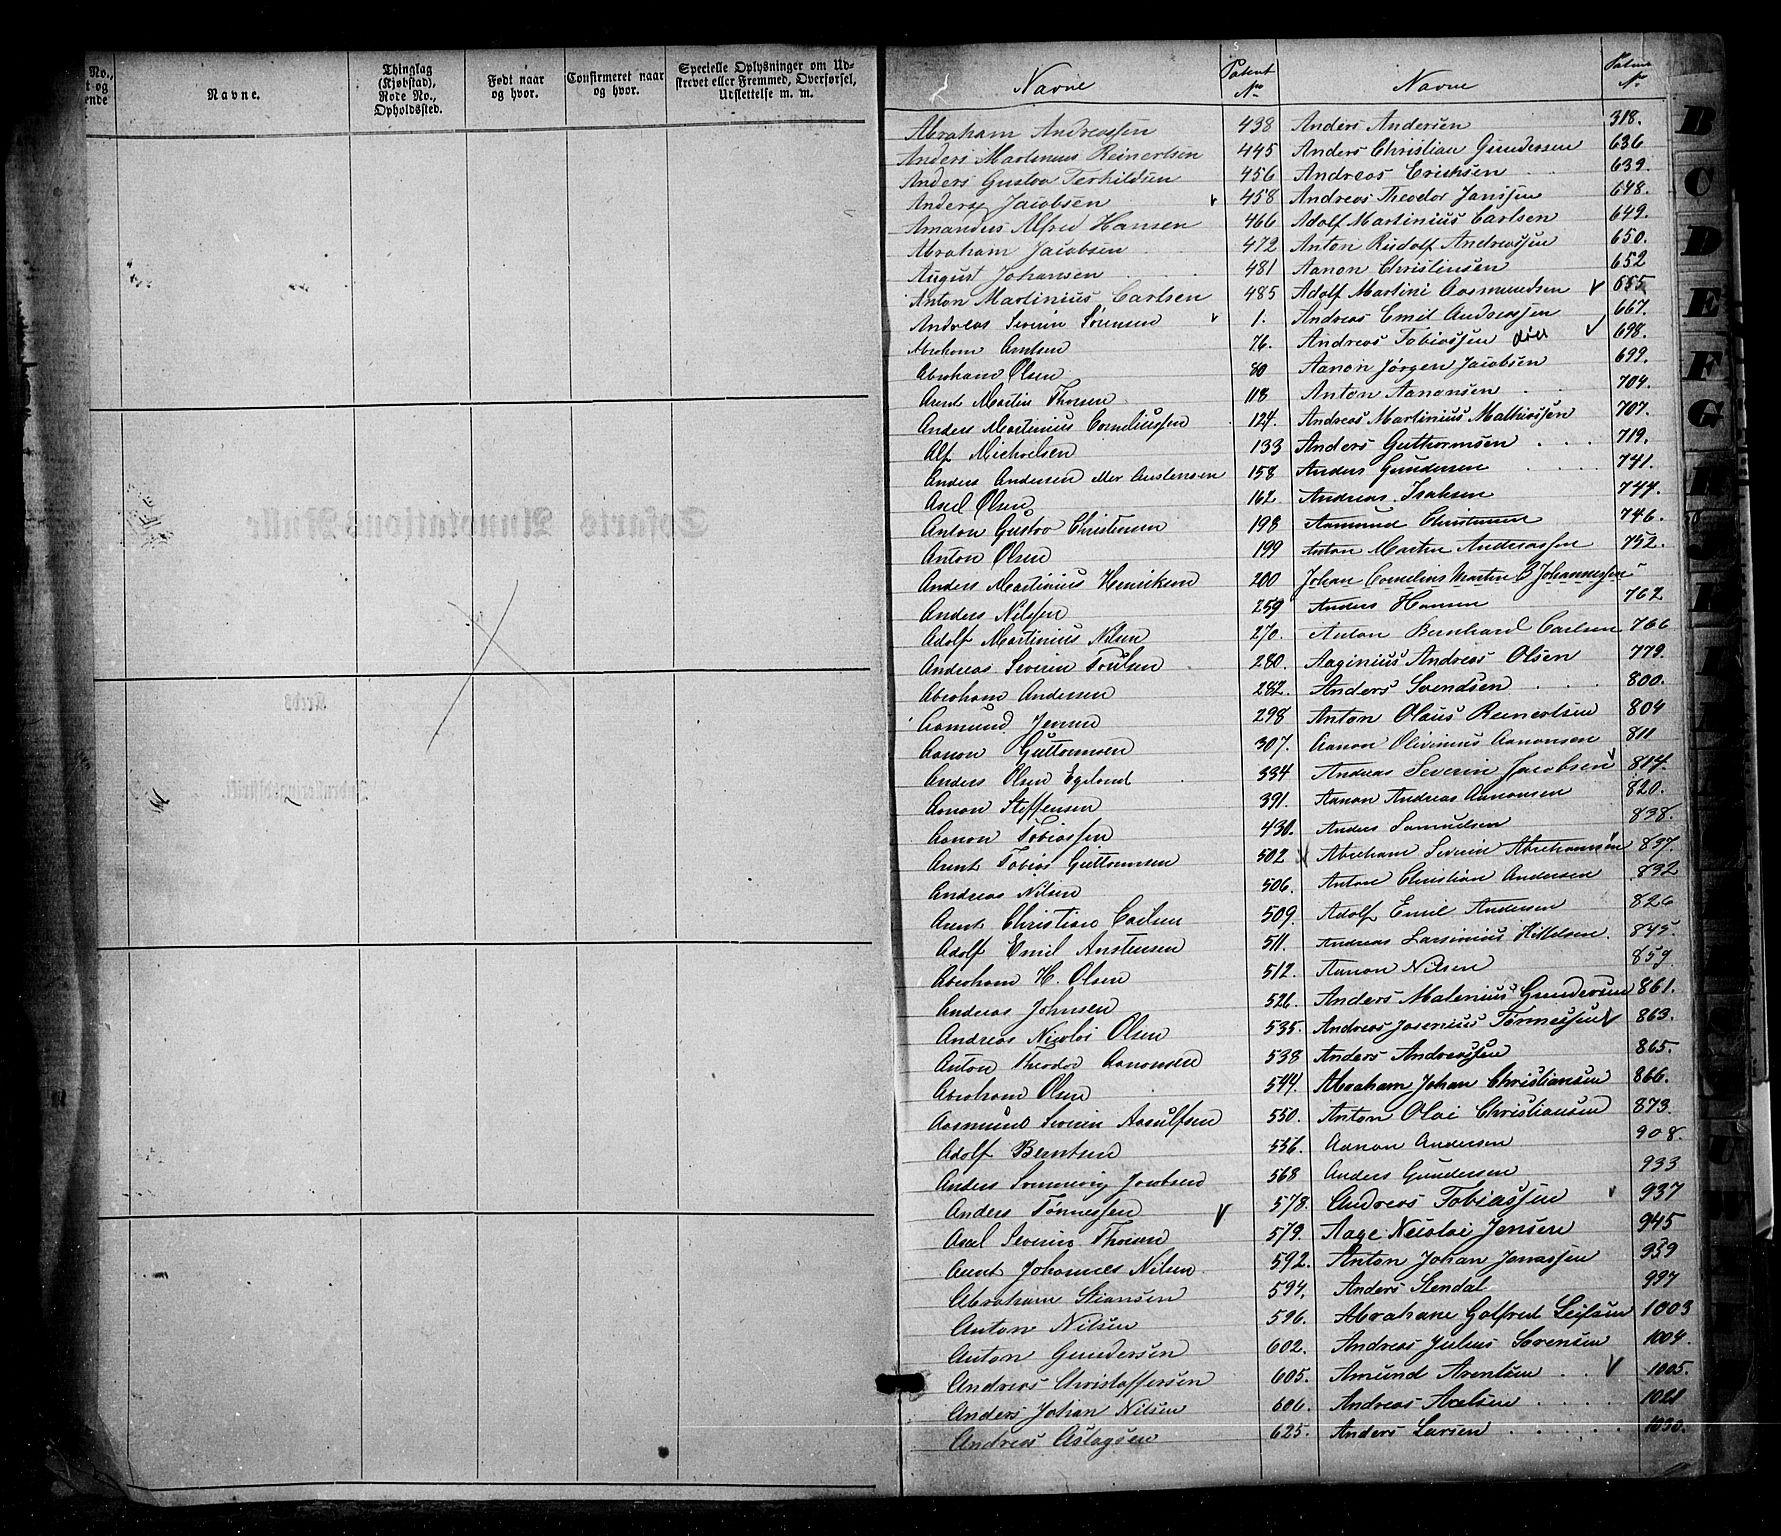 No.,
t og
ende
Navne.
Thinglag
(Kjøbstad),
Rode No.,
Opholdssted.
Født naar
og hvor.
Confirmeret naar
og hvor.
Specielle Oplysninger om Ud-
skrevet eller Fremmed, Overførsel,
Udslettelse m. m.
Navne
Patent
No
Abraham Andreassen 438
Anders Martinus Reinertsen 445
Anders Gustav Terkildsen 456
Anders Jacobsen v 458
Amandus Alfred Hansen 466
Abraham Jacobsen 472
August Johansen 481
Anton Martinius Carlsen 485
Andreas Severin Sørensen v 1.
Abraham Arntsen 76.
Abraham Olsen 80
Arent Martin Thorsen 118
Anders Martinius Corneliussen 124.
Alf Michaelsen 133
Anders Andersen eller Austensen 158
Axel Olsen 162
Anton Gustav Christensen 198
Anton Olsen 199
Anders Martinius Henriksen 200
Anders Nilssen 259
Adolf Martinius Nilsen 270.
Andreas Severin 280.
Abraham Andersen 282.
Aamund Jensen 298
Aanon Guttormsen 307.
Anders Olsen Egeland 334
Aanon Steffensen 391.
Aanon Tobiassen 430.
Arent Tobias Guttormsen 502
Andreas Nilsen 506.
Arent Christian Carlsen 509.
Adolf Emil Anstensen 511.
Abraham H. Olsen 512.
Andreas Johnsen 526.
Andreas Nicolai Olsen 535.
Anton Theodor Aanonsen 538
Abraham Olsen 544.
Aasmund Severin Aasulfsen 550.
Adolf Berntsen 536.
Anders Jacobsen 568
Anders Tønnessen V 578.
Axel Severin 579.
Arent Johannes Nilsen 592.
Abraham Stiansen 594.
Anton Nilsen 596.
Anton Gundersen 602.
Andreas Christoffersen 605.
Anders Johan Nilsen 606.
Andreas Aslagsen 625.
Navne
Patent
No
Anders Andersen 318.
Anders Christian Gundersen 636
Andreas Erichsen 639.
Andreas Theodor Janssen 648.
Adolf Martinius Carlsen 649.
Anton Rudolf Andreassen 650.
Aanon Christensen 652
Adolf Martini Aasmundsen v 655
Andreas Emil Andreassen 667.
Andreas Tobiassen død v 698.
Aanon Jørgen Jacobsen 699.
Anton Aanonsen 704.
Andreas Martinius Mathiassen 707.
Anders Guthormsen 719.
Anders Gundersen 741.
Andreas Isaksen 744.
Aamund Christensen 746.
Anton Martin Andreassen 752.
Johan Cornelius Martin B Johannessen
Anders Hansen 762
Anton Bernhard Carlsen 766
Aaginius Andreas Olsen 779.
Anders Svendsen 800.
Anton Olaus Reinertsen 804
Aanon Olivinius Aanonsen 811
Andreas Severin Jacobsen v 814.
Aanon Andreas Aanonsen 820.
Anders Samuelsen 838.
v Abraham Severin Abrahamsen 837.
Anton Christian Andersen 832
Adolf Emil Andersen 826
Andreas Larsinius Kittelsen. 845.
Aanon Nilsen 859.
Anders Malenius Gundersen 861.
Andreas Josenius Tønnessen v 863.
Anders Andreassen 865.
Abraham Johan Christiansen 866.
Anton Olai Christiansen 873.
Aanon Andersen 908.
Anders Gundersen 933
Andreas Tobiassen v 937
Aage Nicolai Jensen 945
Anton Johan Jonassen 939
Anders Stendal 997
Abrahane Golfred Leifsen 1003
Andreas Julius Sørensen 1004.
Amund Arentsen V 1005.
Andreas Axelsen 1021
Anders Larsen 1030.
B
C
D
E
F
G